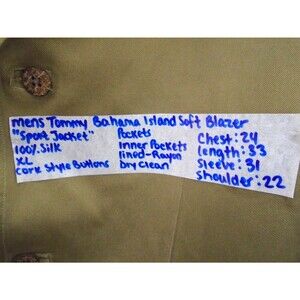 mens Tommy Bahama Island Soft Blazer
"Sport Jacket"
100% Silk
XL
Cork Style Buttons
Pockets
Inner Pockets
lined-Rayon
Dry Clean
Chest: 24
length: 33
Sleeve: 31
Shoulder: 22